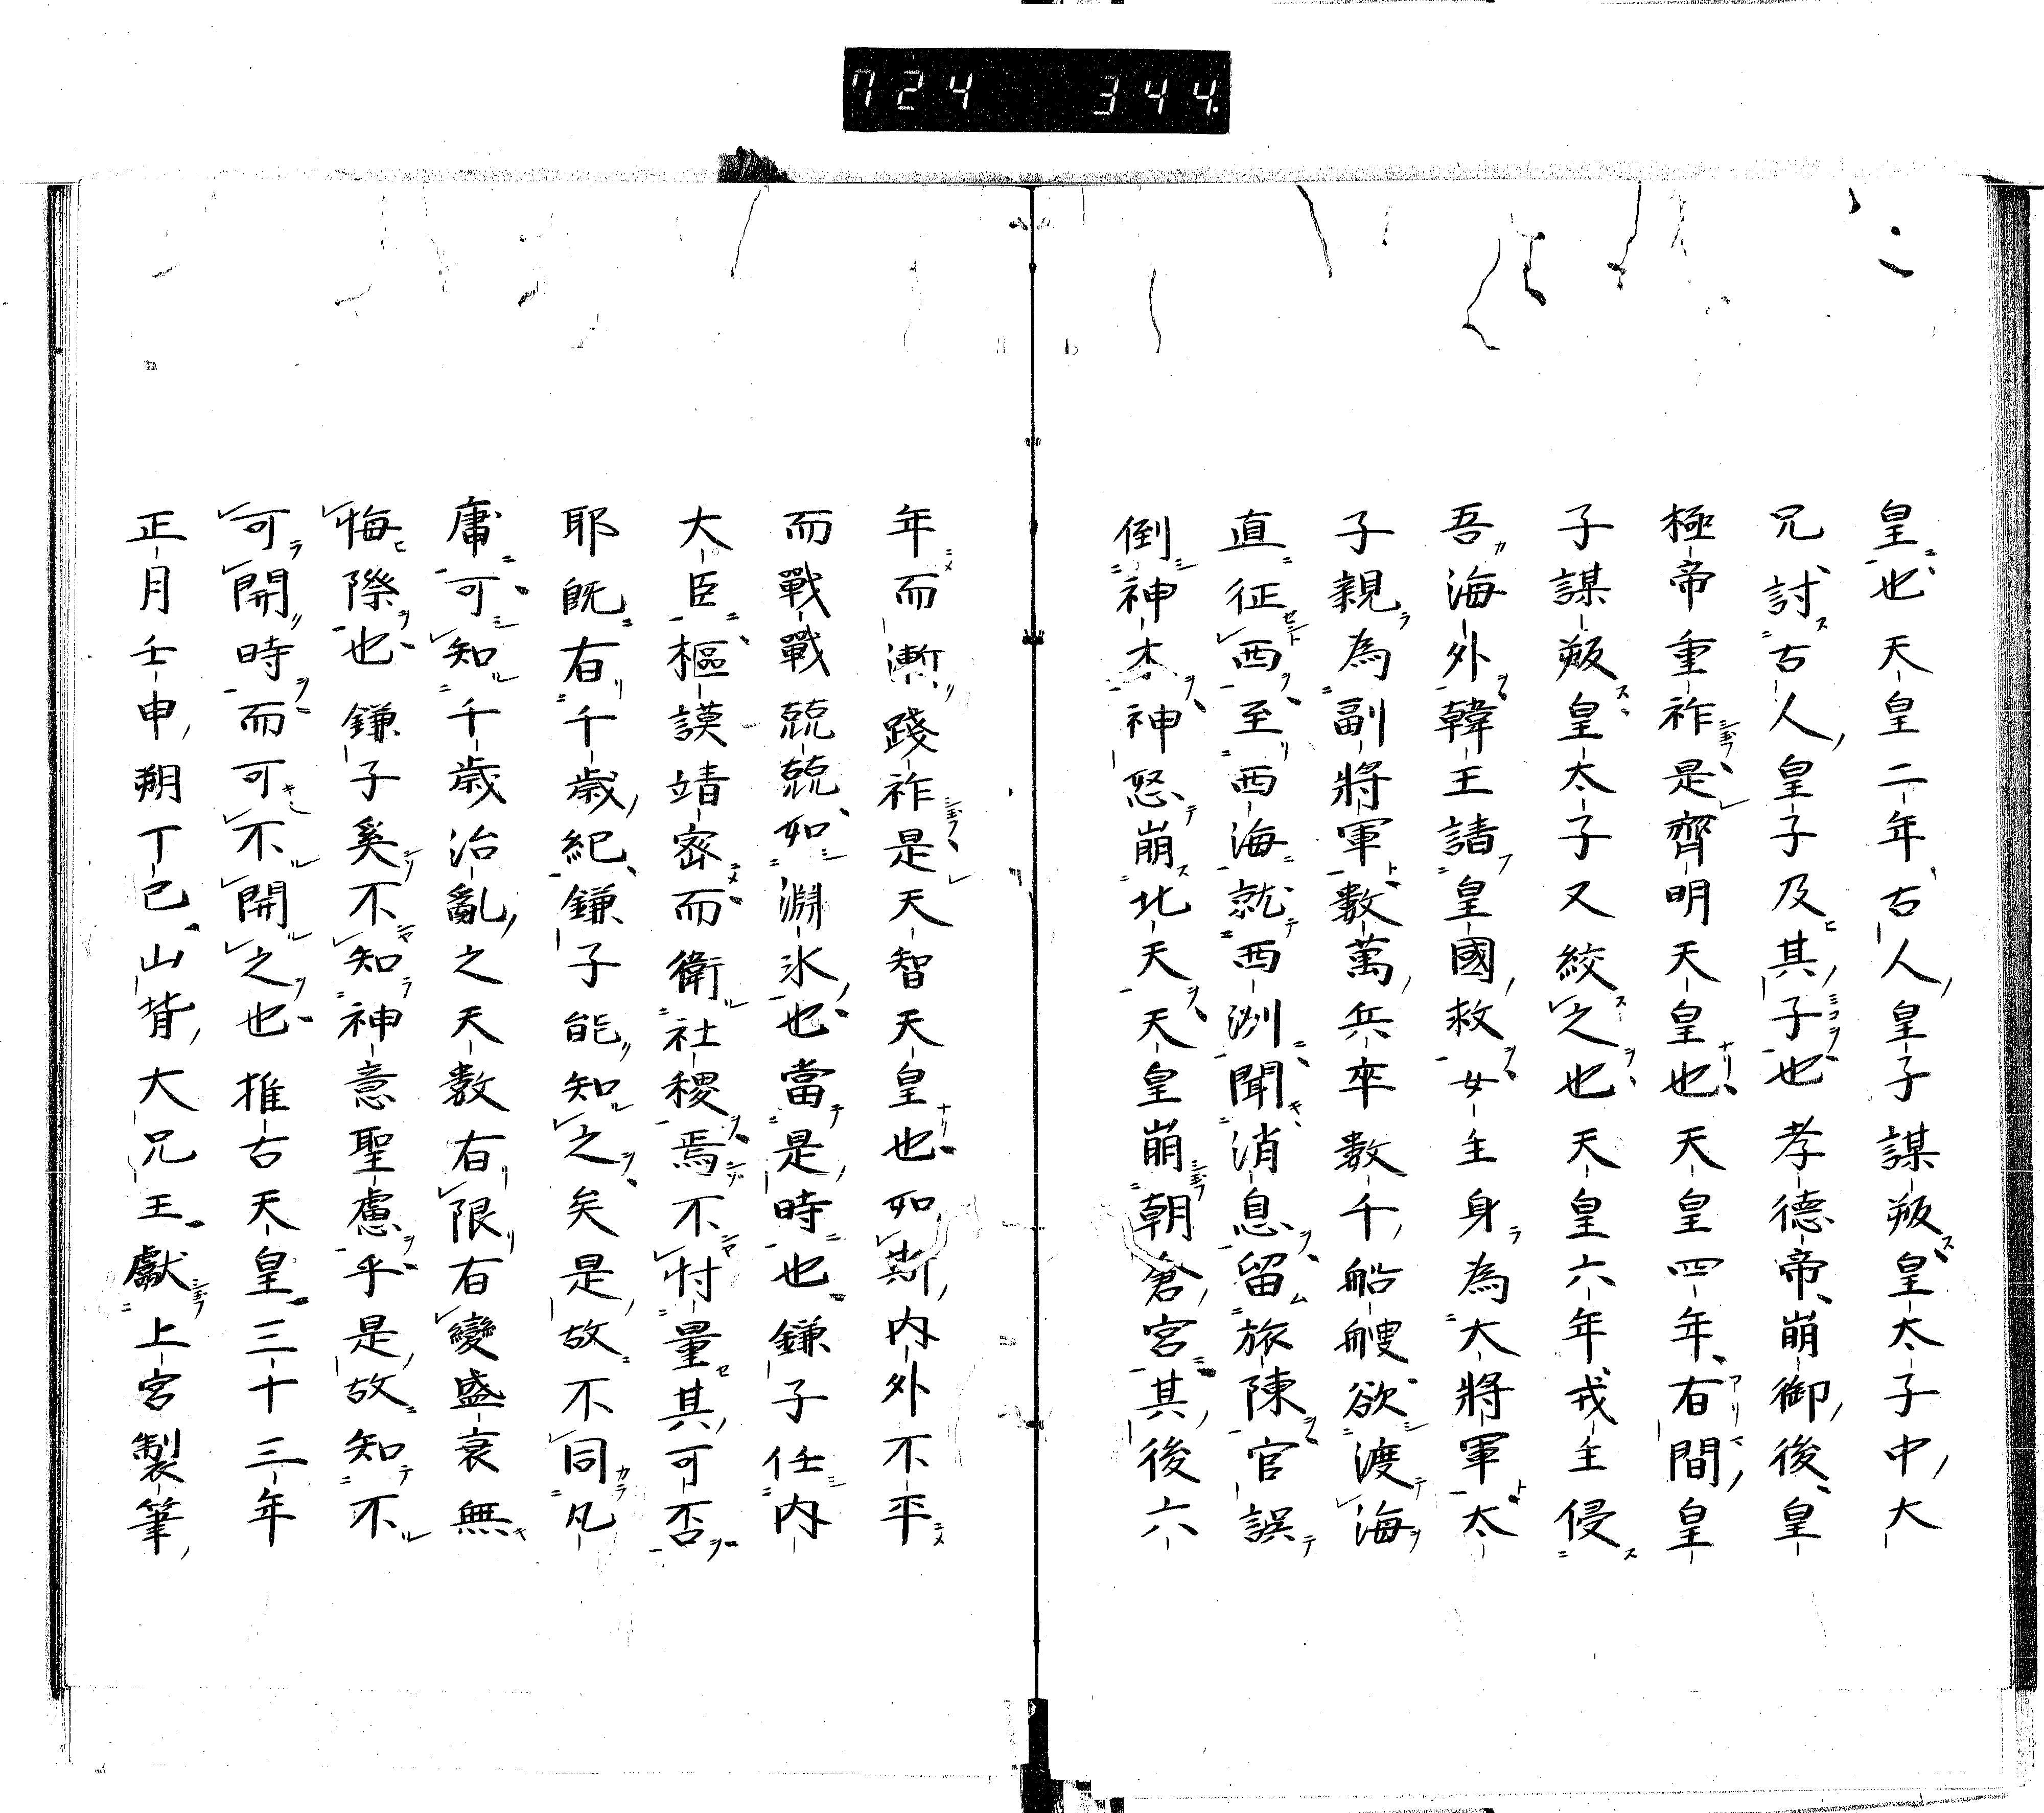 724 344
皇也天皇二年古人皇子謀叛皇太子中大
兄討古人皇子及其子也孝德帝崩御後皇
極帝重祚是齊明天皇也天皇四年有間皇
子謀叛皇太子又絞之也天皇六年戎主侵
吾海外韓王請皇國救女主身為大將軍太
子親為副將軍數萬兵卒數千船艘欲渡海
直征西至西海就西洲聞消息留旅陳官誤
倒神木神怒崩北天天皇崩朝倉宮其後六
年而漸踐祚是天智天皇也如斯内外不平
而戰戰兢兢如淵氷也當是時也鎌子任内
大臣樞謨靖密而衛社稷焉不忖量其可否
耶既有千歳紀鎌子能知之矣是故不同凡
庸可知千歳治亂之天數有限有變盛衰無
悔際也鎌子奚不知神意聖慮乎是故知不
可開時而可不開之也推古天皇三十三年
正月壬申朔丁巳山背大兄王獻上宮製筆